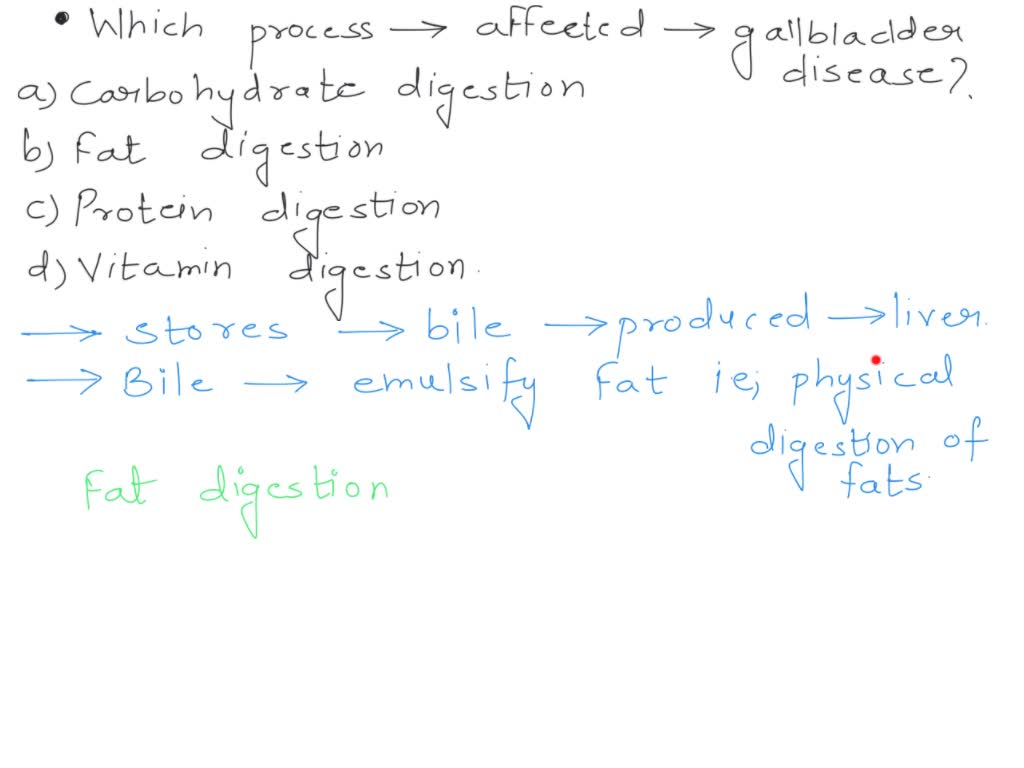 • Which process → affected → gallbladder
disease?
a) Carbohydrate digestion
b) Fat digestion
c) Protein digestion
d) Vitamin digestion.
→ stores → bile → produced → liver.
→ Bile → emulsify fat ie; physical
digestion of
fats.
Fat digestion